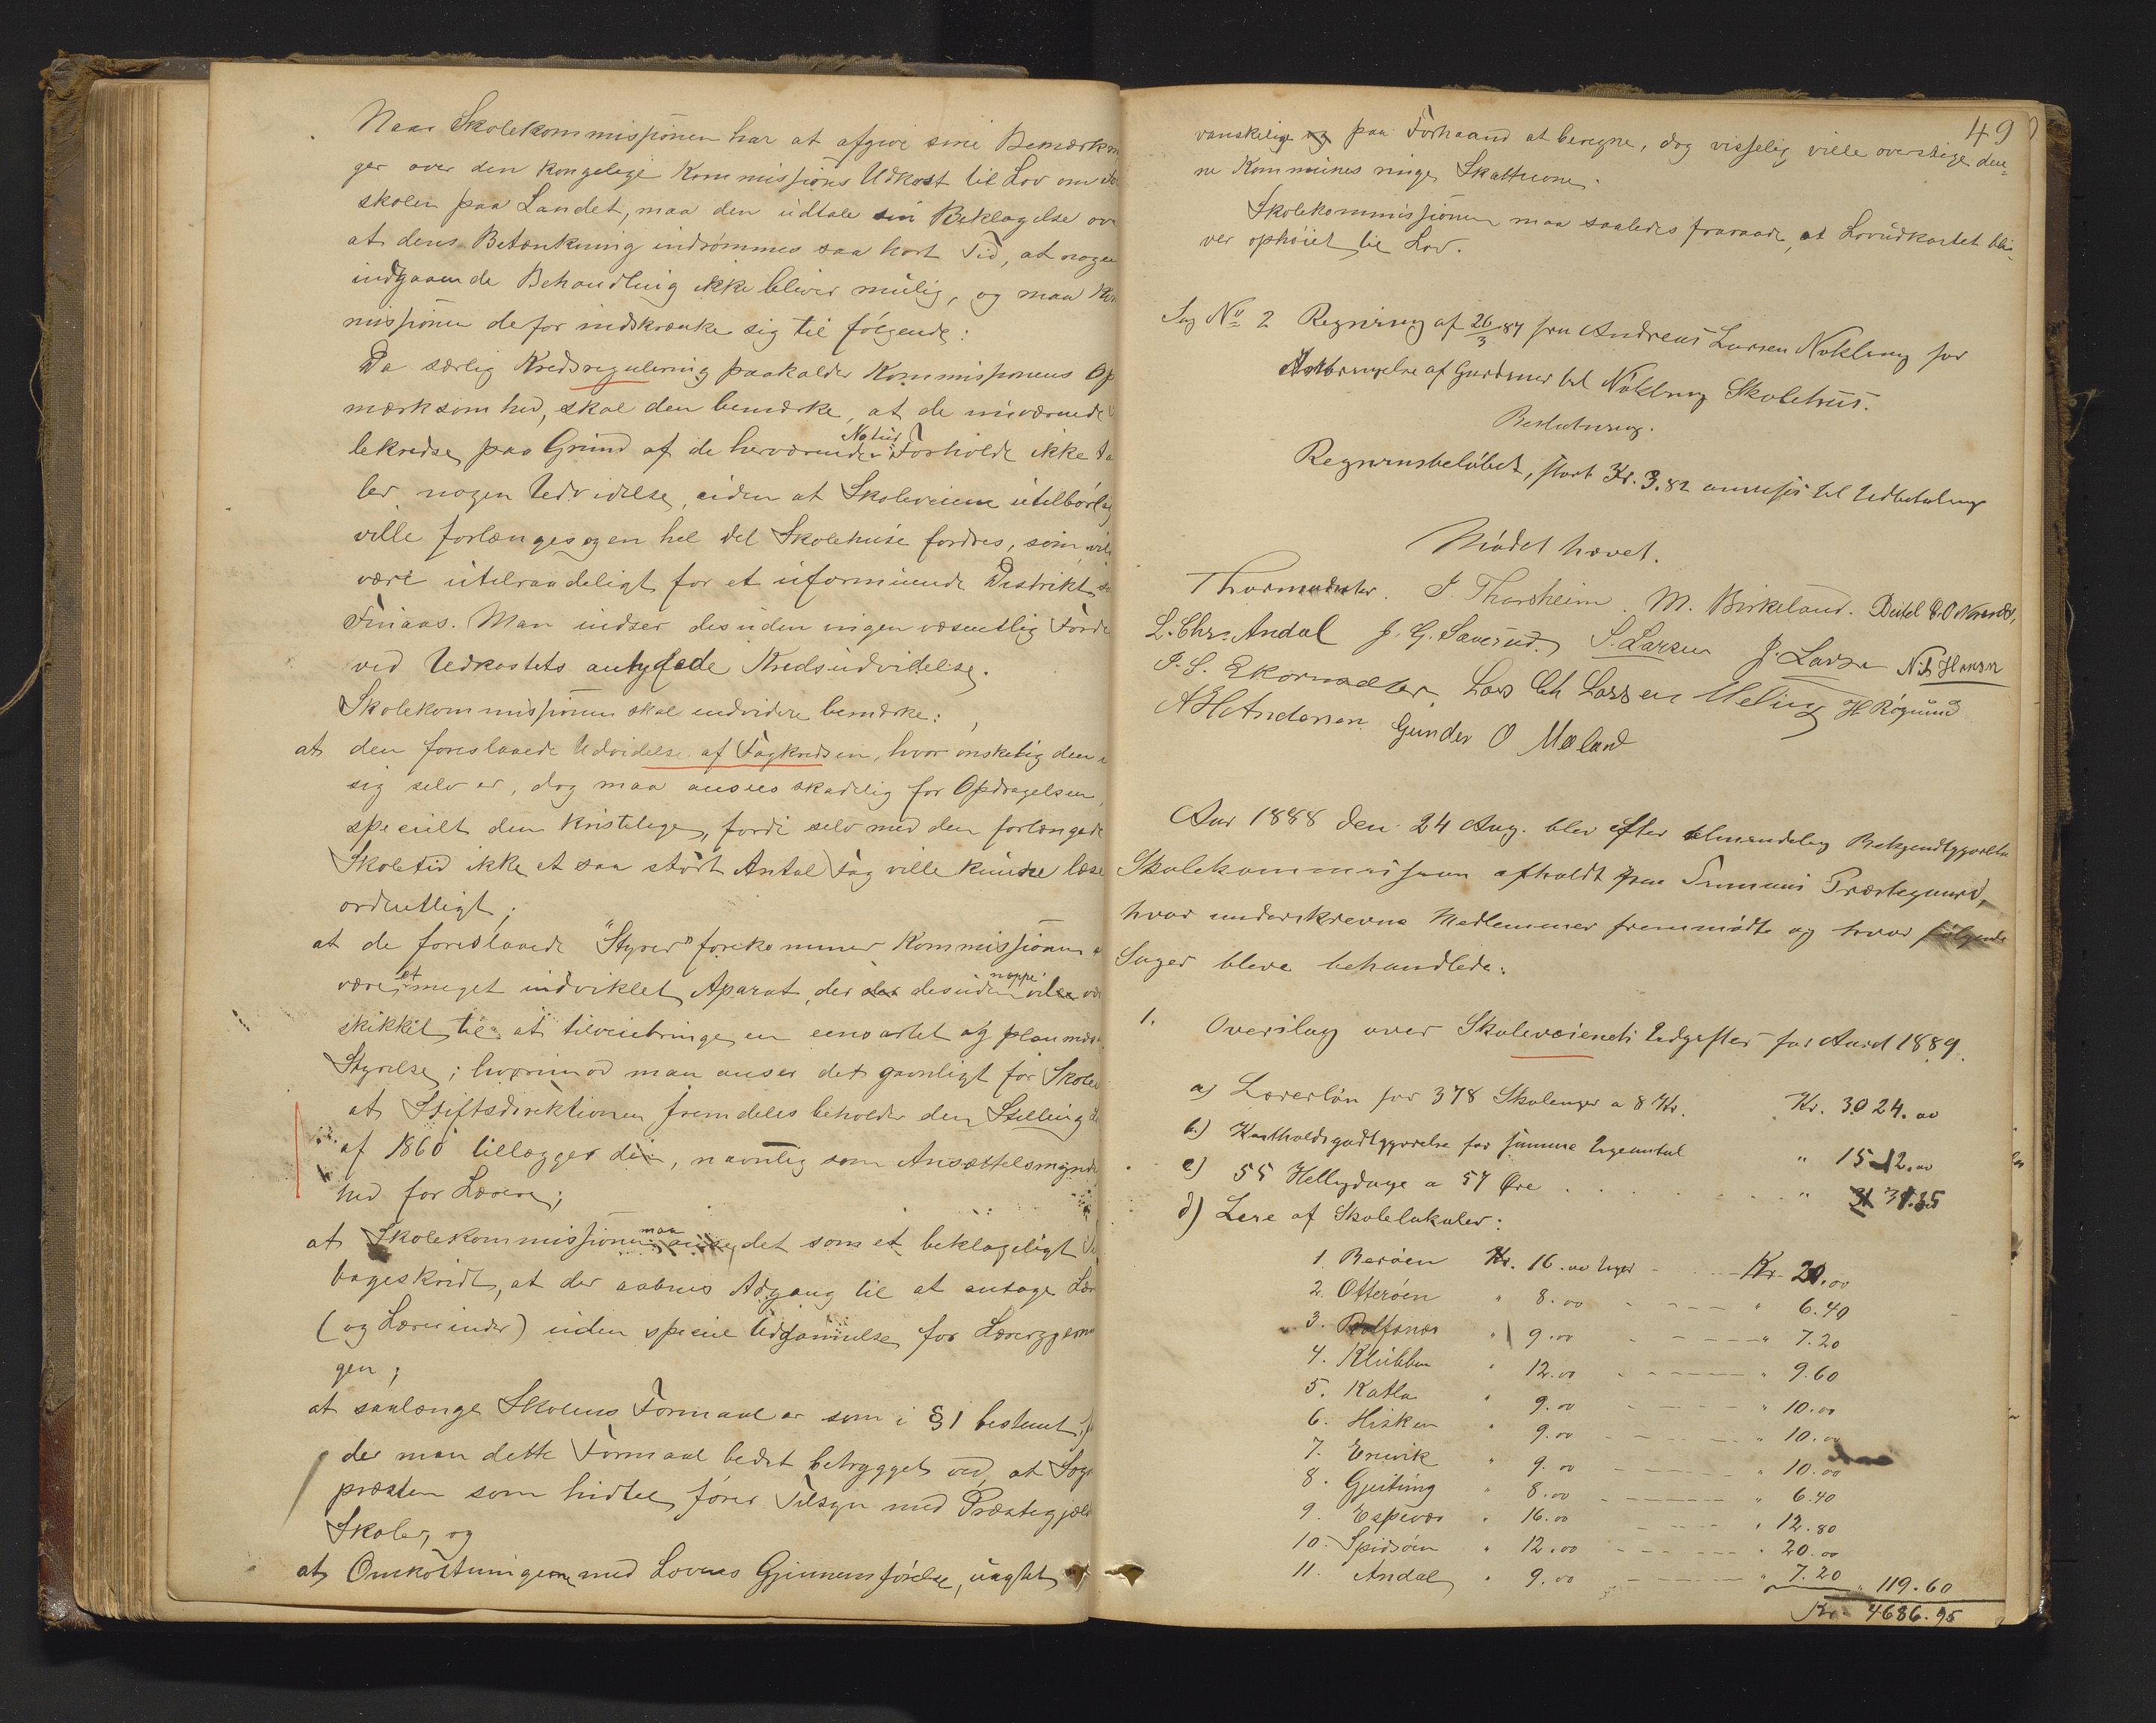 Naar Skolekommissionen har at afgive sine Bemærkn
ger over den kongelige Kommissions Udkast til Lov om
skolen paa Landet, maa den udtale sin Beklagelse ov
at dens Betænkning indrømmes saa kort Tid, at nogen
indgaaende Behandling ikke bliver mulig, og maa Kom
missionen derfor indskrænke sig til følgende:
Da særlig Kredsregulering paakalder Kommissionens Op
mærksomhed, skal den bemærke, at de nuværende
lekredse paa Grund af de herværende Natur Forholde ikke ta
ler nogen Udvidelse, uden at Skoleveiene utilbørlig
ville forlænges og en hel del Skolehuse fordres, som vil
være utilraadeligt for et uformuende Distrikt
Finaas. Man indser desuden ingen væsentlig Forde
ved Udkastets antydede Kredsudvidelse.
Skolekommissionen skal endvidere bemærke:
at den foreslaaede Udvidelse af Fagkredsen, hvor ønskelig den i
sig selv er, dog maa ansees skadelig for Opdragelsen,
specielt den kristelige, fordi selv med den forlængede
Skoletid ikke et saa stort Antal Fag ville kunne læse
ordentligt;
at de foreslaaede "Styrer" forekommer Kommissionen a
være et meget indviklet Aparat, der desuden neppe vil væ
skikket til at tilveiebringe en eensartet og planmæs
Styrelse; hvorimod man anser det gavnligt for Skolen
at Stiftsdirektionen fremdeles beholder den Stilling
af 1860 tillægger den, navnlig som Ansættelsesmyndi
hed for Lærere;
at Skolekommissionen maa anse det som et beklageligt
bageskridt, at der aabnes Adgang til at antage Lær
(og Lærerinder) uden speciel Uddannelse for Lærergjernin
gen;
at saalænge Skolens Formaal er som i § 1 bestemt,
der man dette Formaal bedst betrygget ved, at Sogne
præsten som hidtil fører Tilsyn med Præstegjæld
Skoler, og
at Omkostningerne med Lovens Gjennemførelse, uagtet
49
vanskelige paa Forhaand at beregne, dog visselig ville overstige den-
ne Kommunes ringe Skatteevne.
Skolekommissionen maa saaledes fraraade, at Lovudkastet bli-
ver ophøiet til Lov.
Sag No 2 Regning af 26/3 87 fra Andreas Larsen Nøkling for
af Gardiner til Nøkling Skolehus.
Beslutning.
Regningsbeløbet, stort Kr. 3.82 anvises til Udbetaling
Mødet hævet.
Thormodsæter. J. Thorsheim. M. Birkeland.
L. Chr. Andal J. G. Saverud. S. Larsen J. Larsen N. Hansen
Lars Ch Larsen Meling H Røgnund
A H Andersen Gunder O Mæland
Aar 1888 den 24 Aug. blev efter almindelig Bekjendtgjørelse
Skolekommission afholdt paa Præstegaard,
hvor underskrevne Medlemmer fremmødte og hvor følgende
Sager bleve behandlede:
1. Overslag over Skolevæsenets Udgifter for Aaret 1889.
a) Lærerløn for 378 Skoleuger a 8 Kr. Kr. 3024.00
b.) Kostholdsgodtgjørelse for samme Ugeantal " 1512.00
c) 55 Helligdage a 57 Øre . . . " 31.35
d) Leie af Skolelokaler:
1. Berøen Kr. 16.00 Uger - Kr. 20.00
2. Otterøen " 8.00 - " 6.40
3. Rolfsnæs " 9.00 - " 7.20
4. Klubben " 12.00 - " 9.60
5. Katla " 9.00 - " 10.00
6. Hisken " 9.00 - " 10.00
7. Enevik " 9.00 - " 10.00
8. Gjeitung " 8.00 - " 6.40
9. Espevær " 16.00 - " 12.80
10. Spidsøen " 12.00 - " 20.00
11. Andal " 9.00 - " 7.20 " 119.60
Kr. 4686.95